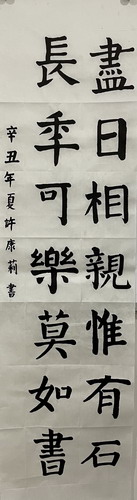 盡日相親惟有石
長年可樂莫如書
辛丑年夏许康莉書